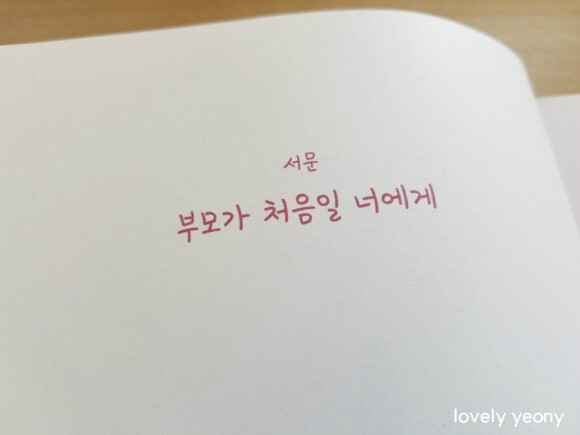 서문
부모가 처음일 너에게
lovely yeony